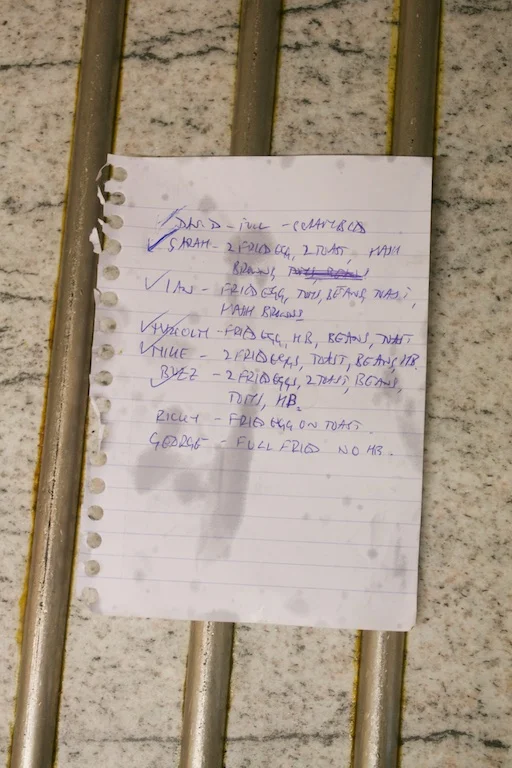 DAVID - FULL - SCRAMBLED
SARAH - 2 FRIED EGG, 2 TOAST, HASH
BROWNS,
IAN - FRIED EGG, TOMS, BEANS, TOAST,
HASH BROWNS
MALCOLM - FRIED EGG, HB, BEANS, TOAST
MIKE - 2 FRIED EGGS, TOAST, BEANS, HB.
BUZZ - 2 FRIED EGGS, 2 TOAST, BEANS,
TOMS, HB.
RICKY - FRIED EGG ON TOAST.
GEORGE - FULL FRIED NO HB.